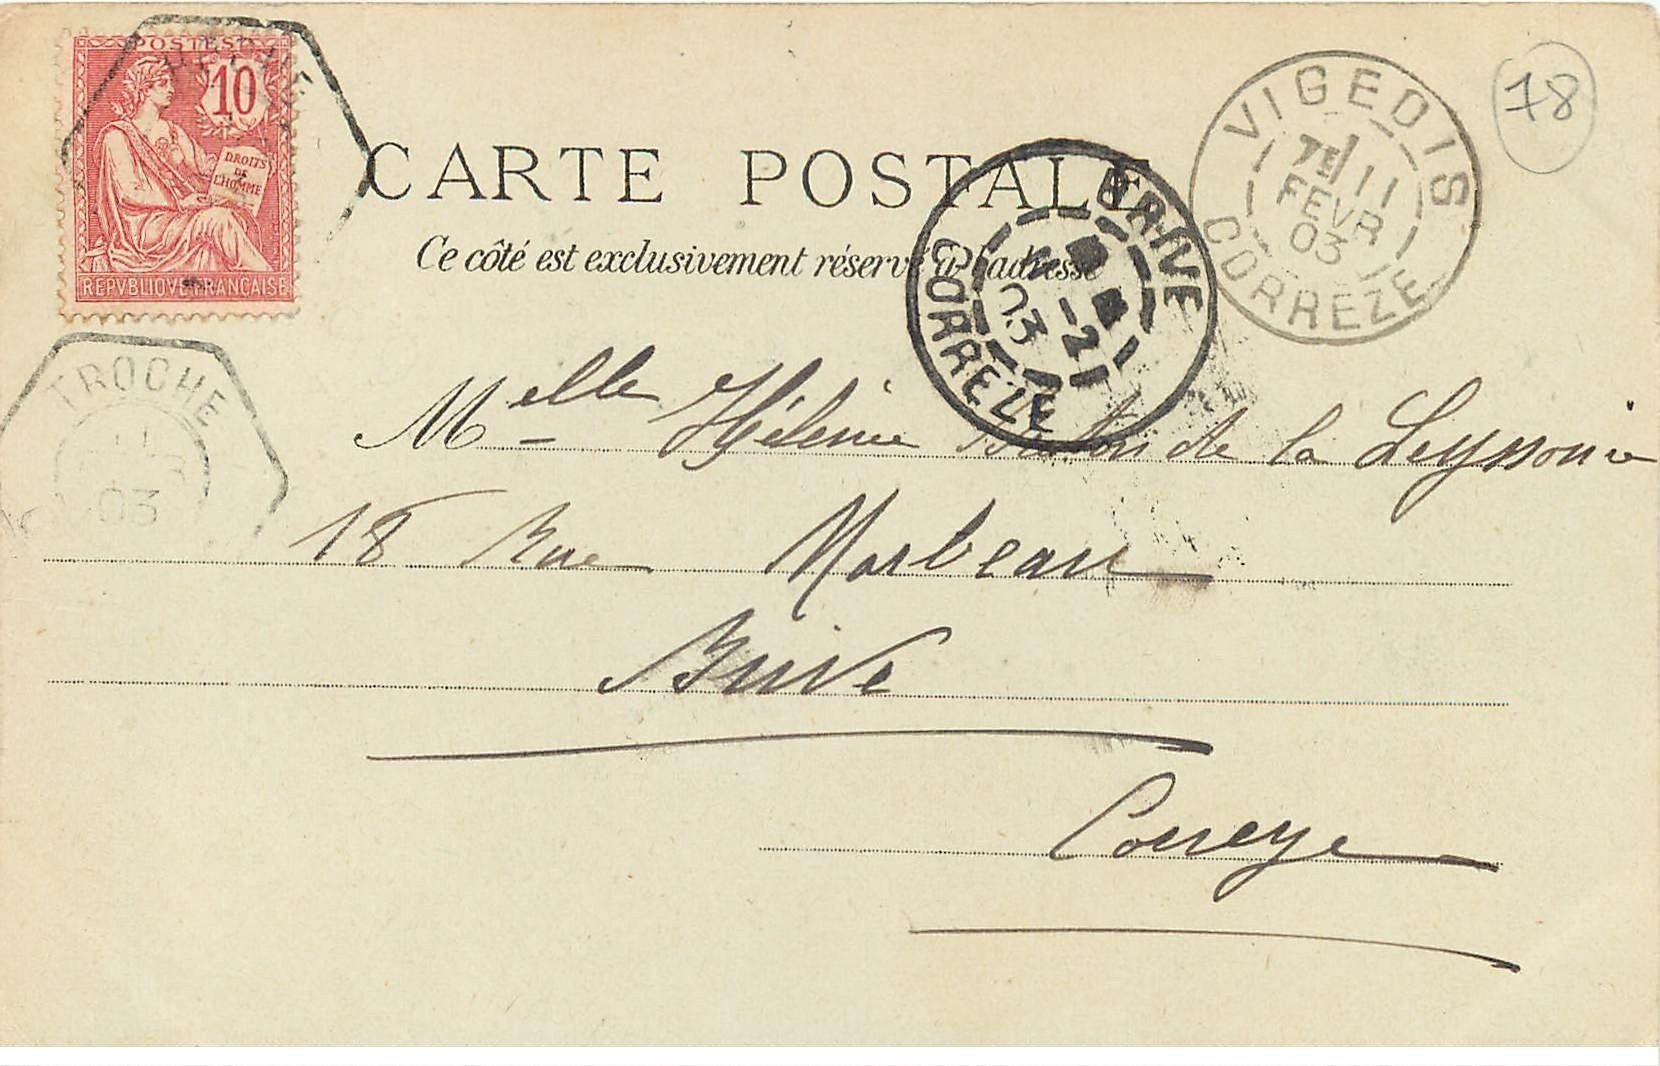 POSTES
10
DROITS
DE
L'HOMME
REPVBLIQVE FRANÇAISE
TROCHE
11
03
CARTE POSTALE
Ce côté est exclusivement réservé à l'adresse
BRIVE
-2
03
CORREZE
VIGEOIS
7E 11
FEVR
03
CORREZE
78
Melle Hélène de la Leyssonie
18 Rue Marbeau
Brive
Correze